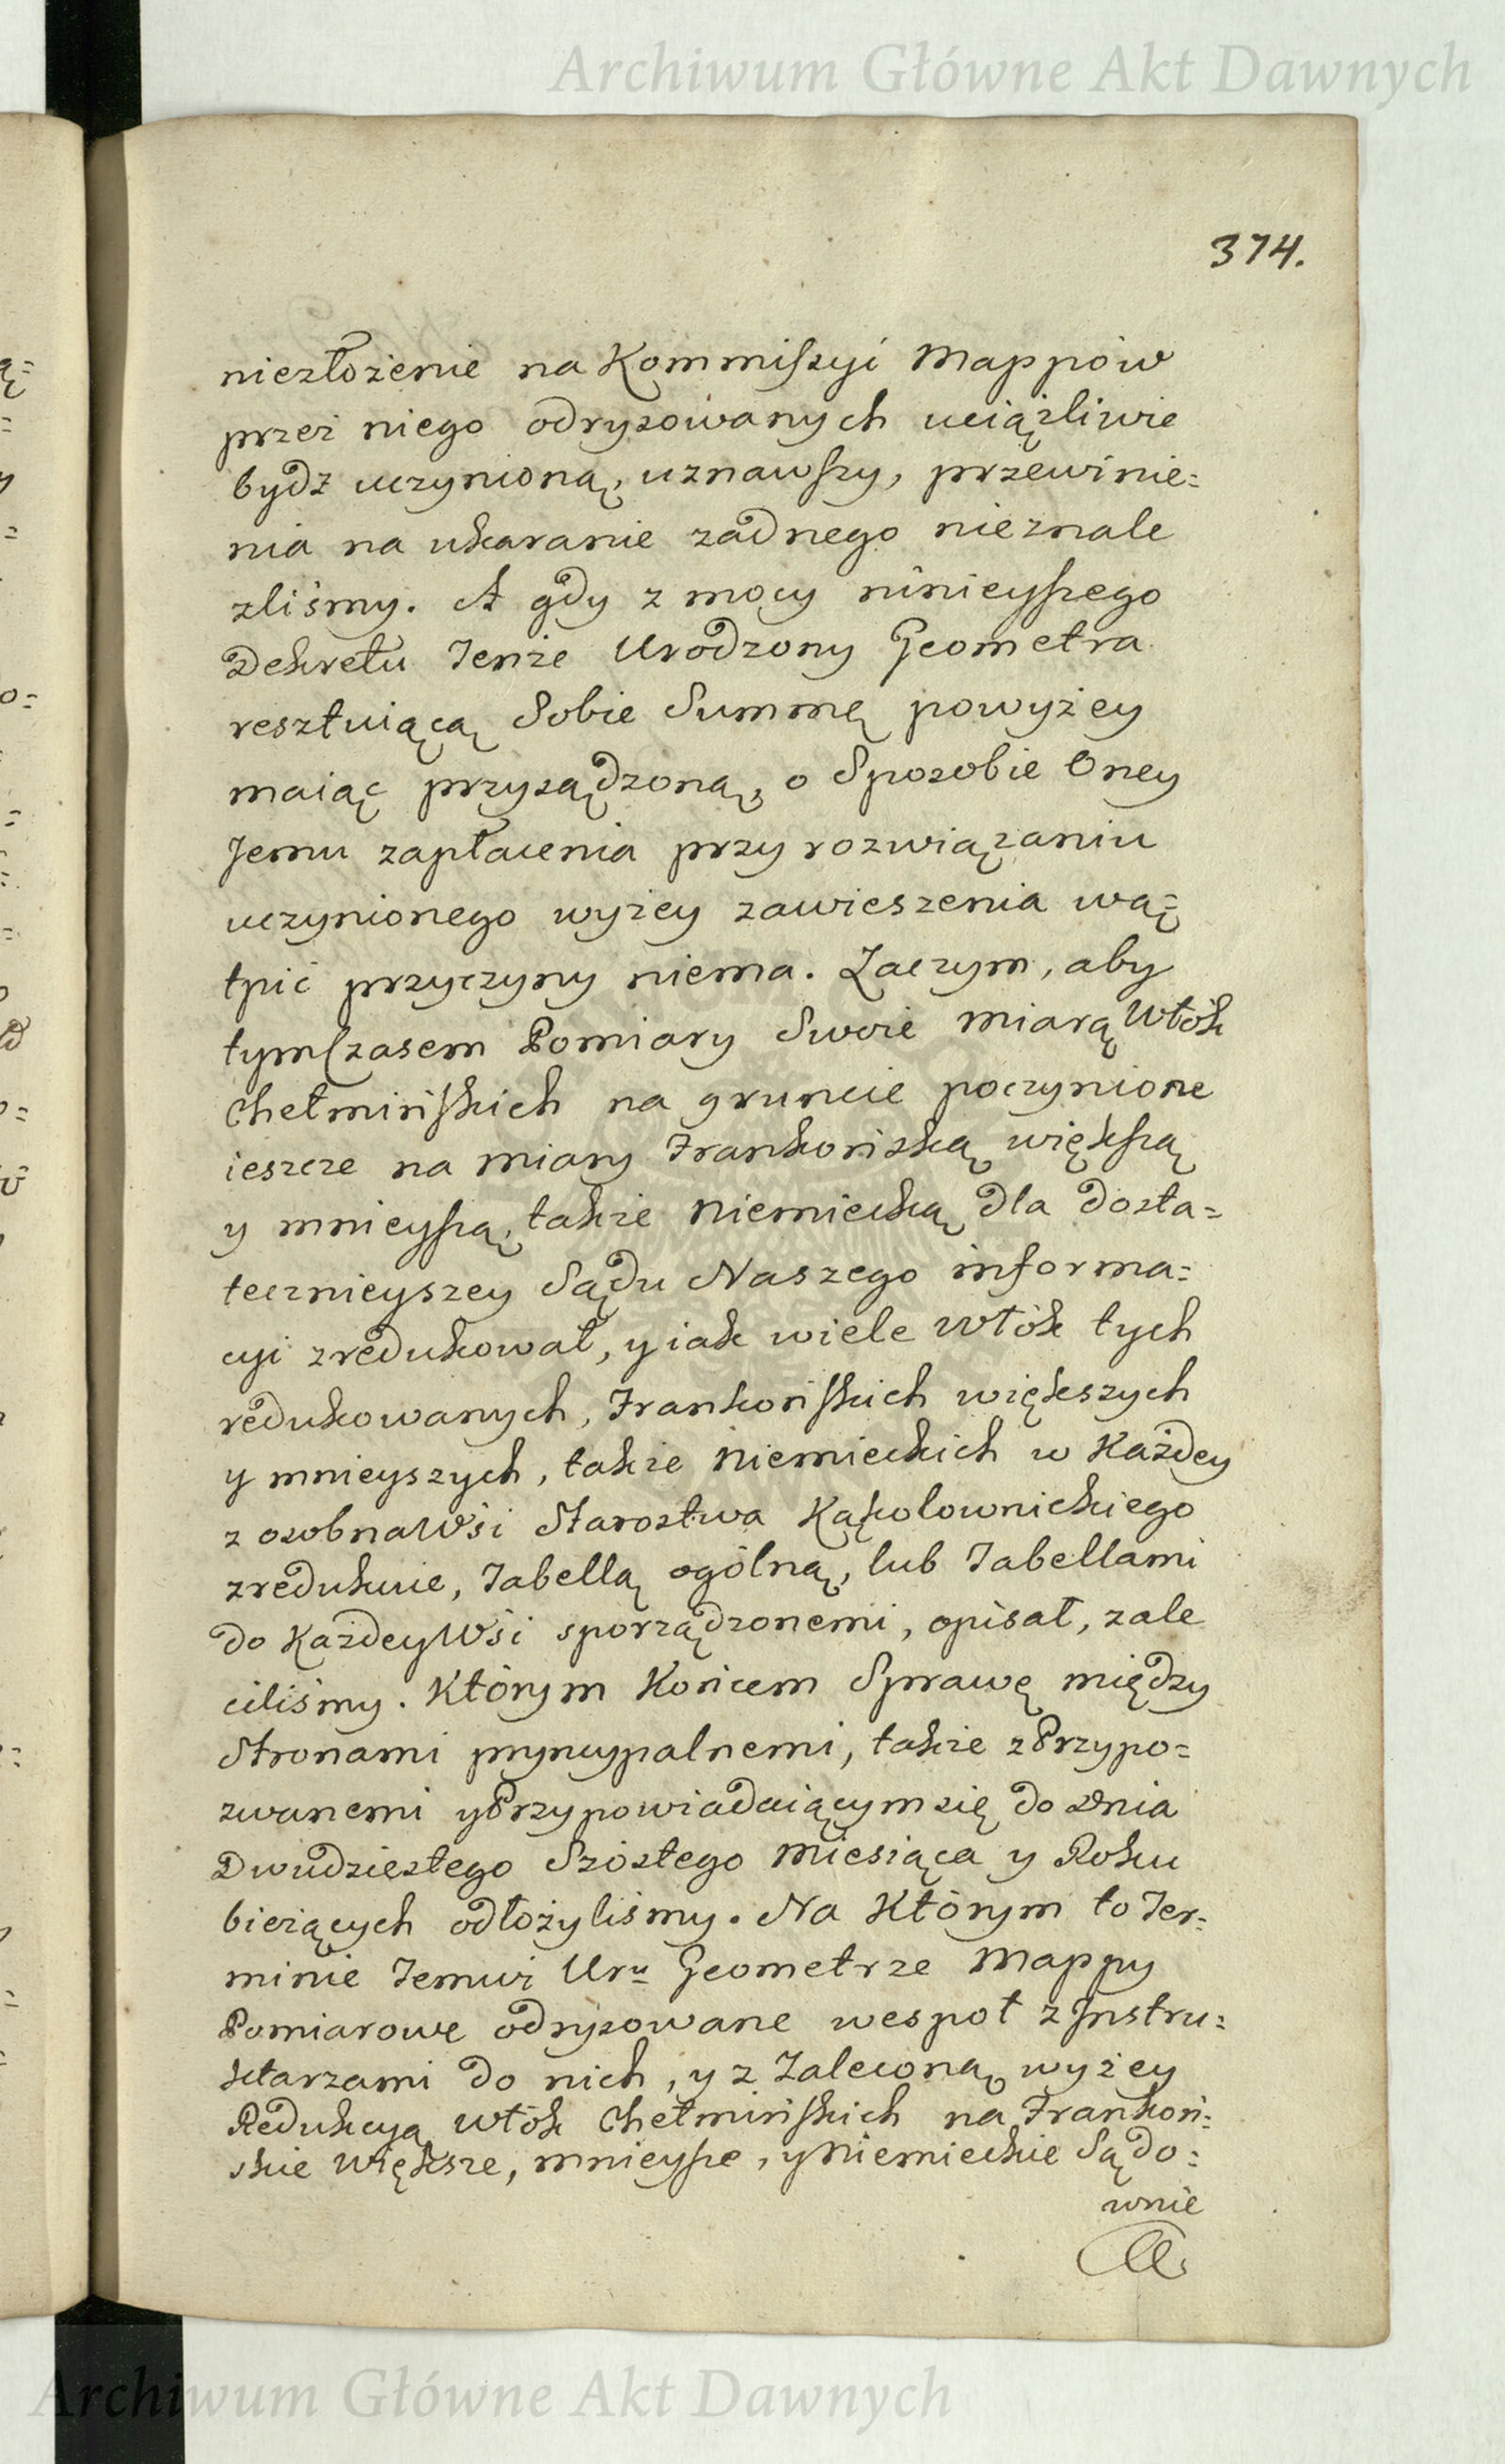 Archiwum Główne Akt Dawnych
374.
niezłożenie na Kommissyi Mappow
przez niego odrysowanych uciążliwie
bydz uczynioną, uznawszy, przewinie=
nia na ukaranie zadnego nieznale
zliśmy. A gdy z mocy ninieyszego
Dekretu Tenże Urodzony Geometra
resztuiącą Sobie Summę powyżey
maiąc przysądzoną, o Sposobie Oney
Jemu zapłacenia przy rozwiązaniu
uczynionego wyżey zawieszenia wą=
tpić przyczyny niema. Zaczym, aby
tymczasem Pomiary Swoie miarą Włók
Chełmińskich na gruncie poczynione
ieszcze na miary Frankońską większą
y mnieyszą, także Niemiecką dla dosta=
tecznieyszey Sądu Naszego informa=
cyi zredukował, y iak wiele Włók tych
redukowanych, Frankońskich większych
y mnieyszych, także Niemieckich w Każdey
z osobna Wsi Starostwa Kąkolownickiego
zredukuie, Tabellą ogólną, lub Tabellami
do Każdey Wsi sporządzonemi, opisał, zale
ciliśmy. Którym Końcem Sprawę między
Stronami pryncypalnemi, także z Przypo=
zwanemi y Przypowiadaiącym się do Dnia
Dwudziestego Szóstego Miesiąca y Roku
bieżących odłożyliśmy. Na Którym to Ter=
minie Temuż Uru Geometrze Mappy
Pomiarowe odrysowane wespoł z Instru=
ktarzami do nich, y z Zaleconą wyżey
Redukcyą Włók Chełmińskich na Frankoń=
skie Większe, mnieysze, y Niemieckie Sądo=
wnie
Archiwum Główne Akt Dawnych